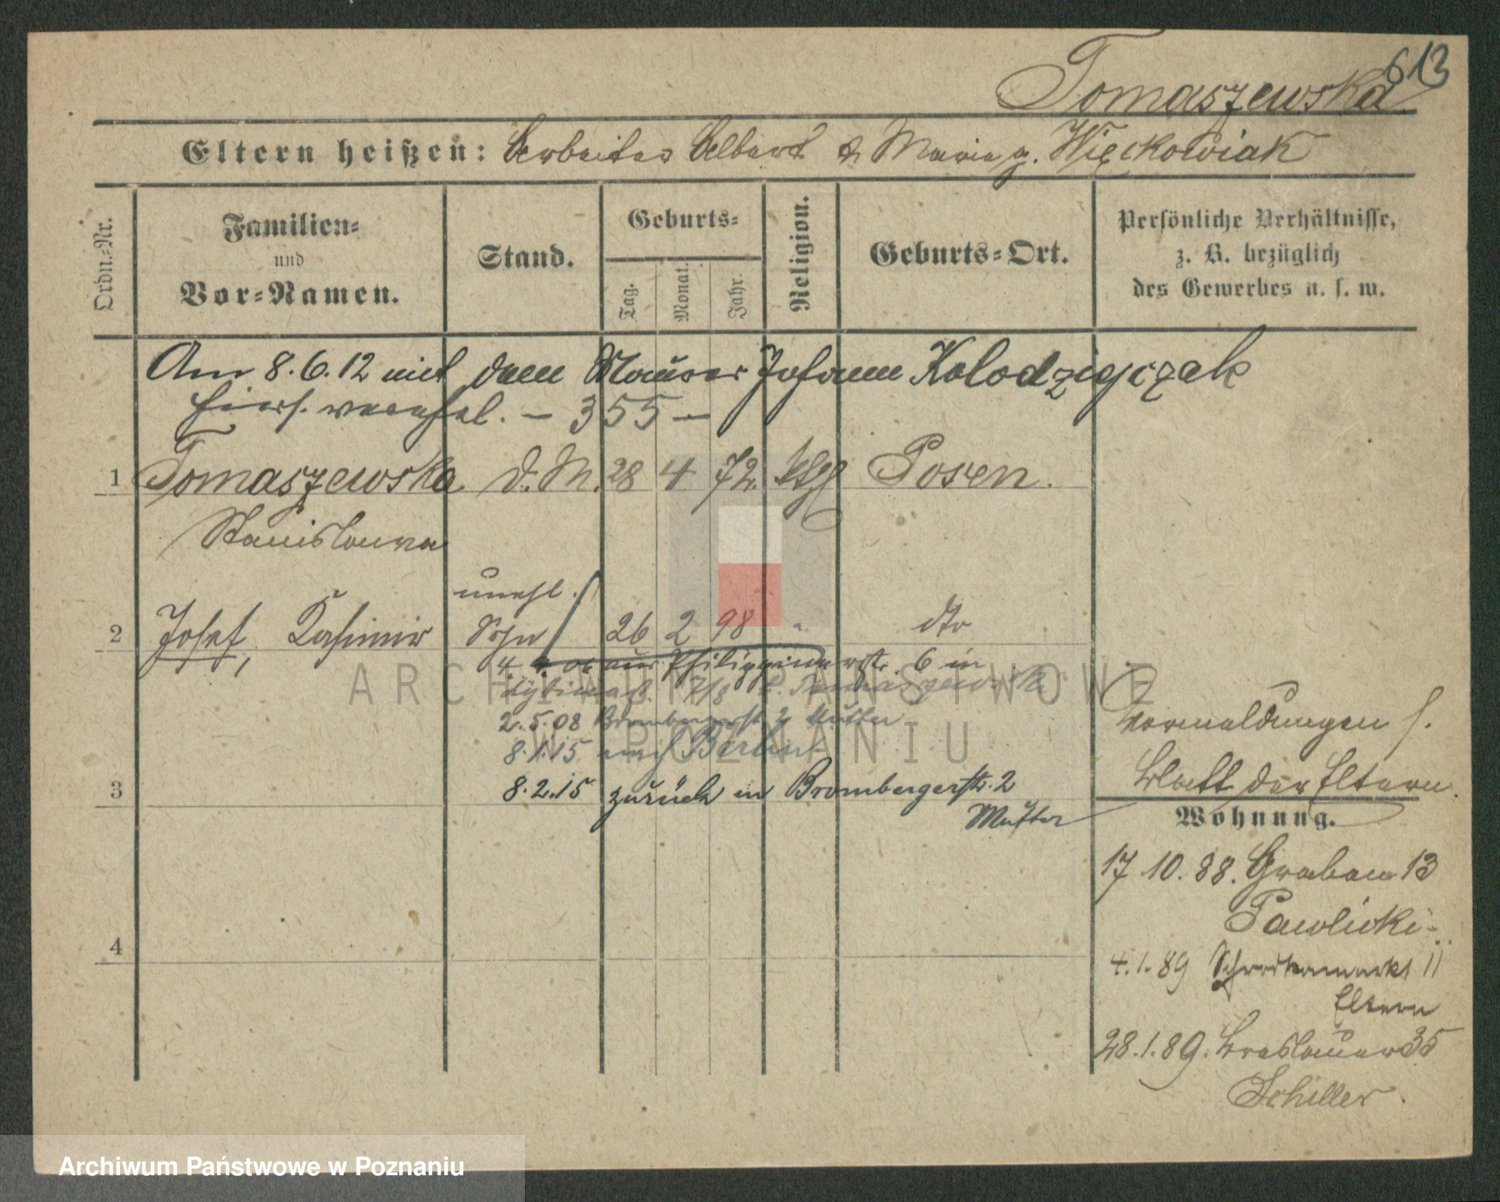 613
Tomaszewska
Eltern heißen: Arbeiter Albert & Maria g. Więckowiak
Ordn.-Nr.
Familien-
und
Vor-Namen.
Stand.
Geburts-
Tag.
Monat.
Jahr.
Religion.
Geburts-Ort.
Persönliche Verhältnisse,
z. B. bezüglich
des Gewerbes u. s. w.
Am 8.6.12 mit dem Maurer Johann Kolodziejczak
hiers. verehel. – 355 –
1 Tomaszewska d. M. 28 4 72. kth Posen.
Stanislawa
unehl.
2 Josef, Kasimir Sohn 26 2 98 " dto
4. 06 aus Philippinerstr. 6 in
7/8 b. Tomaszewski
2.5.08 Brombergerst 2 Mutter
8.1.15 nach Berlin
3 8.2.15 zurück in Brombergerstr. 2
Mutter
Vermeldungen s.
Blatt der Eltern.
Wohnung.
17 10. 88. Graben 13
Pawlicki
4.1.89 11
Eltern
28.1.89. Breslauer 35
Schiller.
4
ARCHIWUM PAŃSTWOWE
W POZNANIU
Archiwum Państwowe w Poznaniu